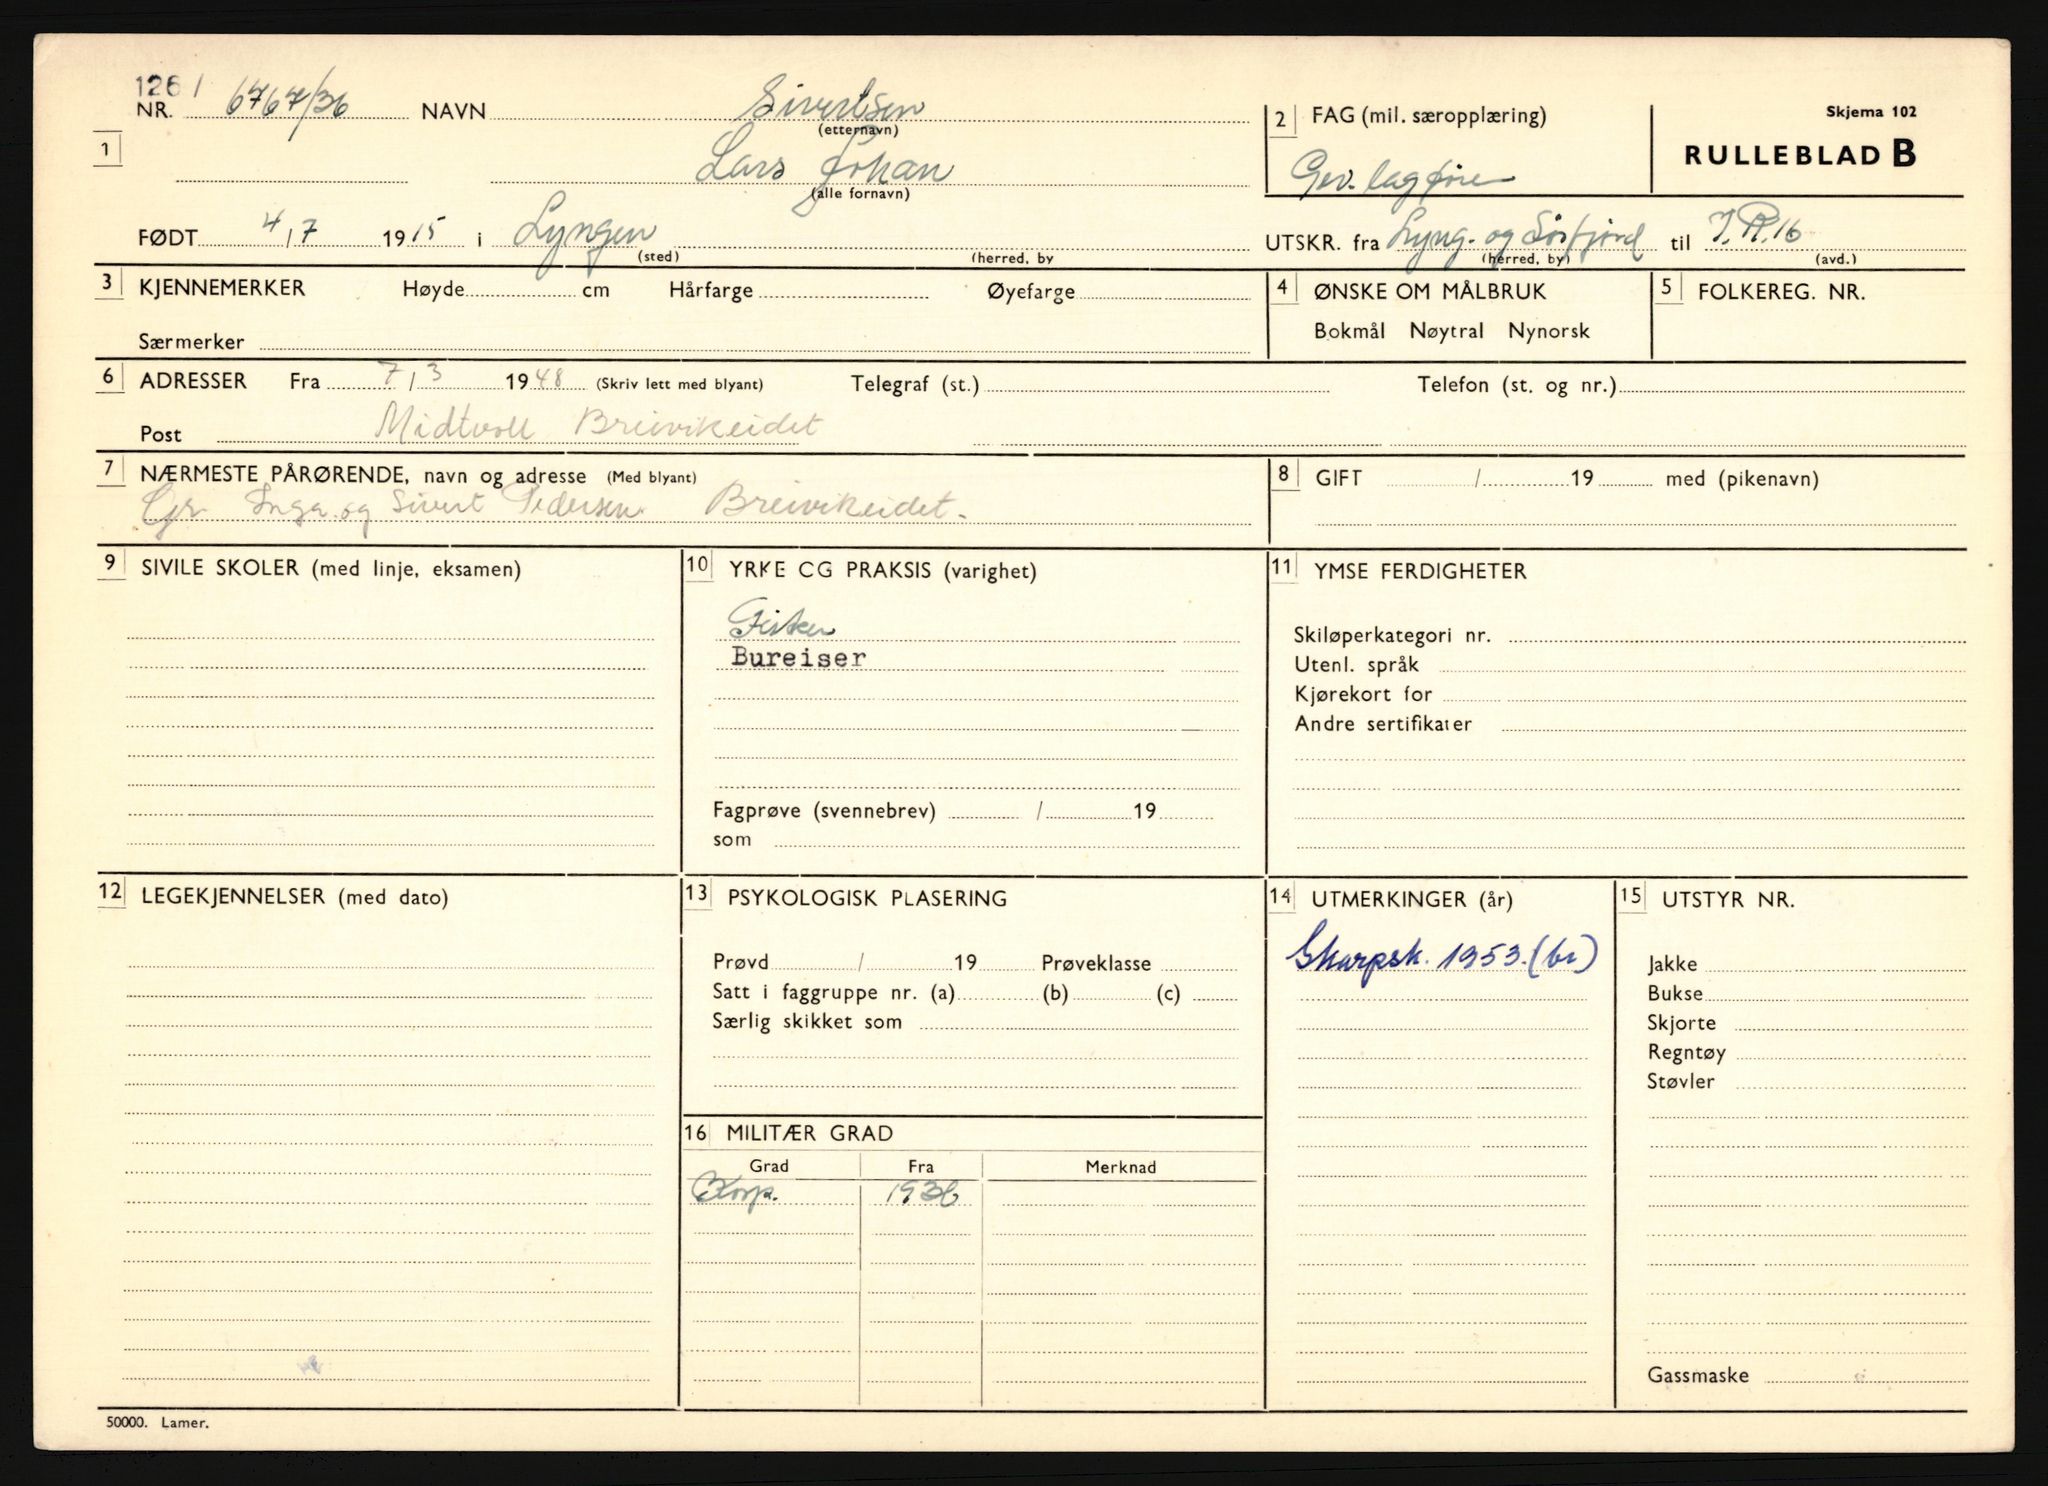 1261
NR. 6767/36 NAVN Sivertsen
(etternavn)
2 FAG (mil. særopplæring)
Skjema 102
RULLEBLAD B
1 Lars Johan
(alle fornavn)
Gev. lagfører
FØDT 4/7 1915 i Lyngen
(sted) (herred, by
UTSKR. fra Lyng- og Sørfjord til I.R.16
(herred, by) (avd.)
3 KJENNEMERKER Høyde cm Hårfarge Øyefarge
Særmerker
4 ØNSKE OM MÅLBRUK
Bokmål Nøytral Nynorsk
5 FOLKEREG. NR.
6 ADRESSER Fra 7/3 1948 (Skriv lett med blyant) Telegraf (st.) Telefon (st. og nr.)
Post Midtvoll Breivikeidet
7 NÆRMESTE PÅRØRENDE, navn og adresse (Med blyant)
Gr. Inga og Sivert Pedersen Breivikeidet.
8 GIFT / 19 med (pikenavn)
9 SIVILE SKOLER (med linje, eksamen)
10 YRKE CG PRAKSIS (varighet)
Fisker
Bureiser
Fagprøve (svennebrev) / 19
som
11 YMSE FERDIGHETER
Skiløperkategori nr.
Utenl. språk
Kjørekort for
Andre sertifikater
12 LEGEKJENNELSER (med dato)
13 PSYKOLOGISK PLASERING
Prøvd / 19 Prøveklasse
Satt i faggruppe nr. (a) (b) (c)
Særlig skikket som
14 UTMERKINGER (år)
Skarpsk. 1953. (br)
15 UTSTYR NR.
Jakke
Bukse
Skjorte
Regntøy
Støvler
Gassmaske
16 MILITÆR GRAD
Grad Fra Merknad
Korp. 1936
50000. Lamer.